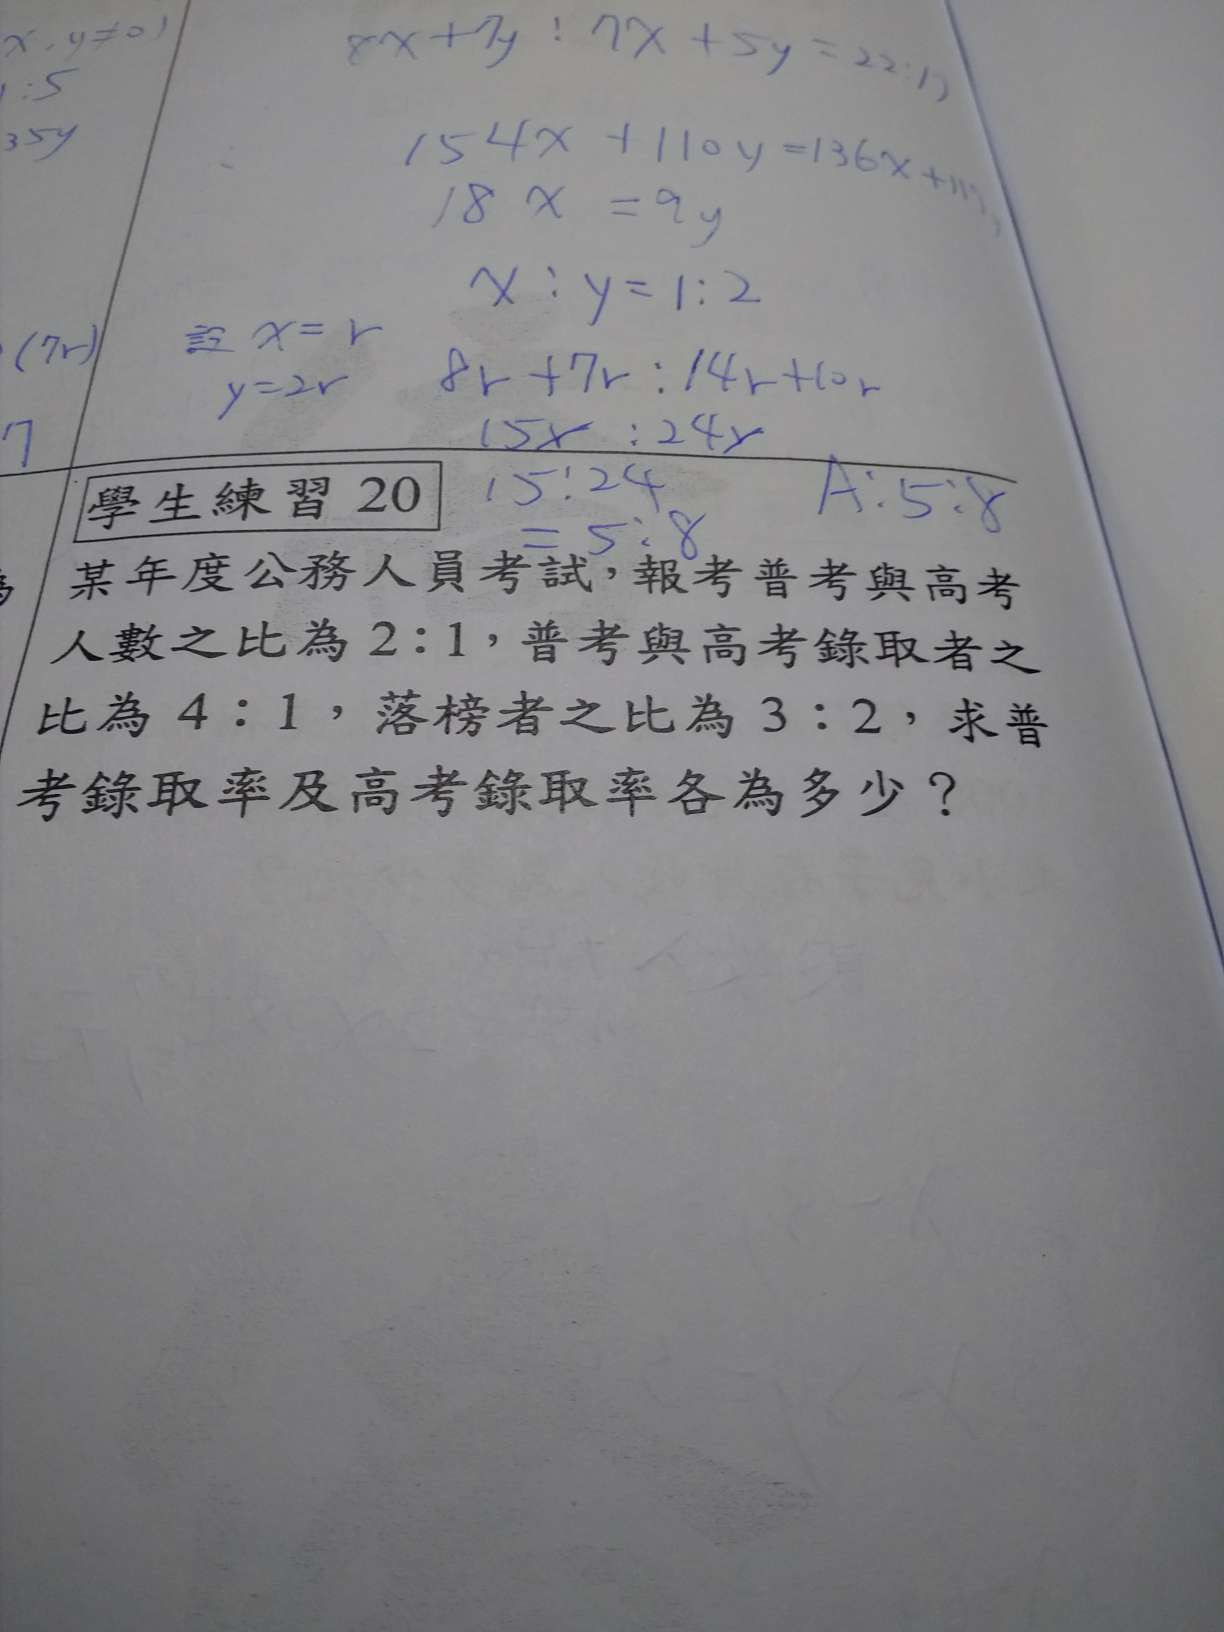 x, y≠0)
8x+7y : 7x+5y=22:17
:5
35y
154x+110y=136x+119y
18x=9y
x:y=1:2
(7r)
設 x=r
y=2r
8r+7r:14r+10r
7
15r:24r
學生練習 20
15:24
A:5:8
=5:8
某年度公務人員考試,報考普考與高考
人數之比為2:1,普考與高考錄取者之
比為 4:1,落榜者之比為 3:2,求普
考錄取率及高考錄取率各為多少?